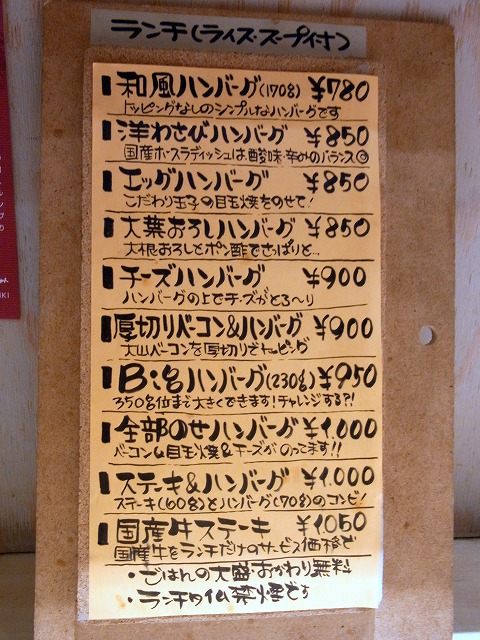 ランチ(ライス・スープ付)
和風ハンバーグ(170g) ¥780
トッピングなしのシンプルなハンバーグです
洋わさびハンバーグ ¥850
国産ホースラディッシュは酸味・辛みのバランス◎
エッグハンバーグ ¥850
こだわり玉子の目玉焼をのせて!
大葉おろしハンバーグ ¥850
大根おろしとポン酢でさっぱりと…
チーズハンバーグ ¥900
ハンバーグの上でチーズがとろ〜り
厚切りベーコン&ハンバーグ ¥900
大山ベーコンを厚切りでトッピング
Bigハンバーグ(230g) ¥950
350g位まで大きくできます!チャレンジする?!
全部のせハンバーグ ¥1,000
ベーコン&目玉焼&チーズがのってます!!
ステーキ&ハンバーグ ¥1,000
ステーキ(60g)とハンバーグ(70g)のコンビ!
国産牛ステーキ ¥1050
国産牛をランチだけのサービス価格で
・ごはんの大盛・おかわり無料
・ランチタイム禁煙です